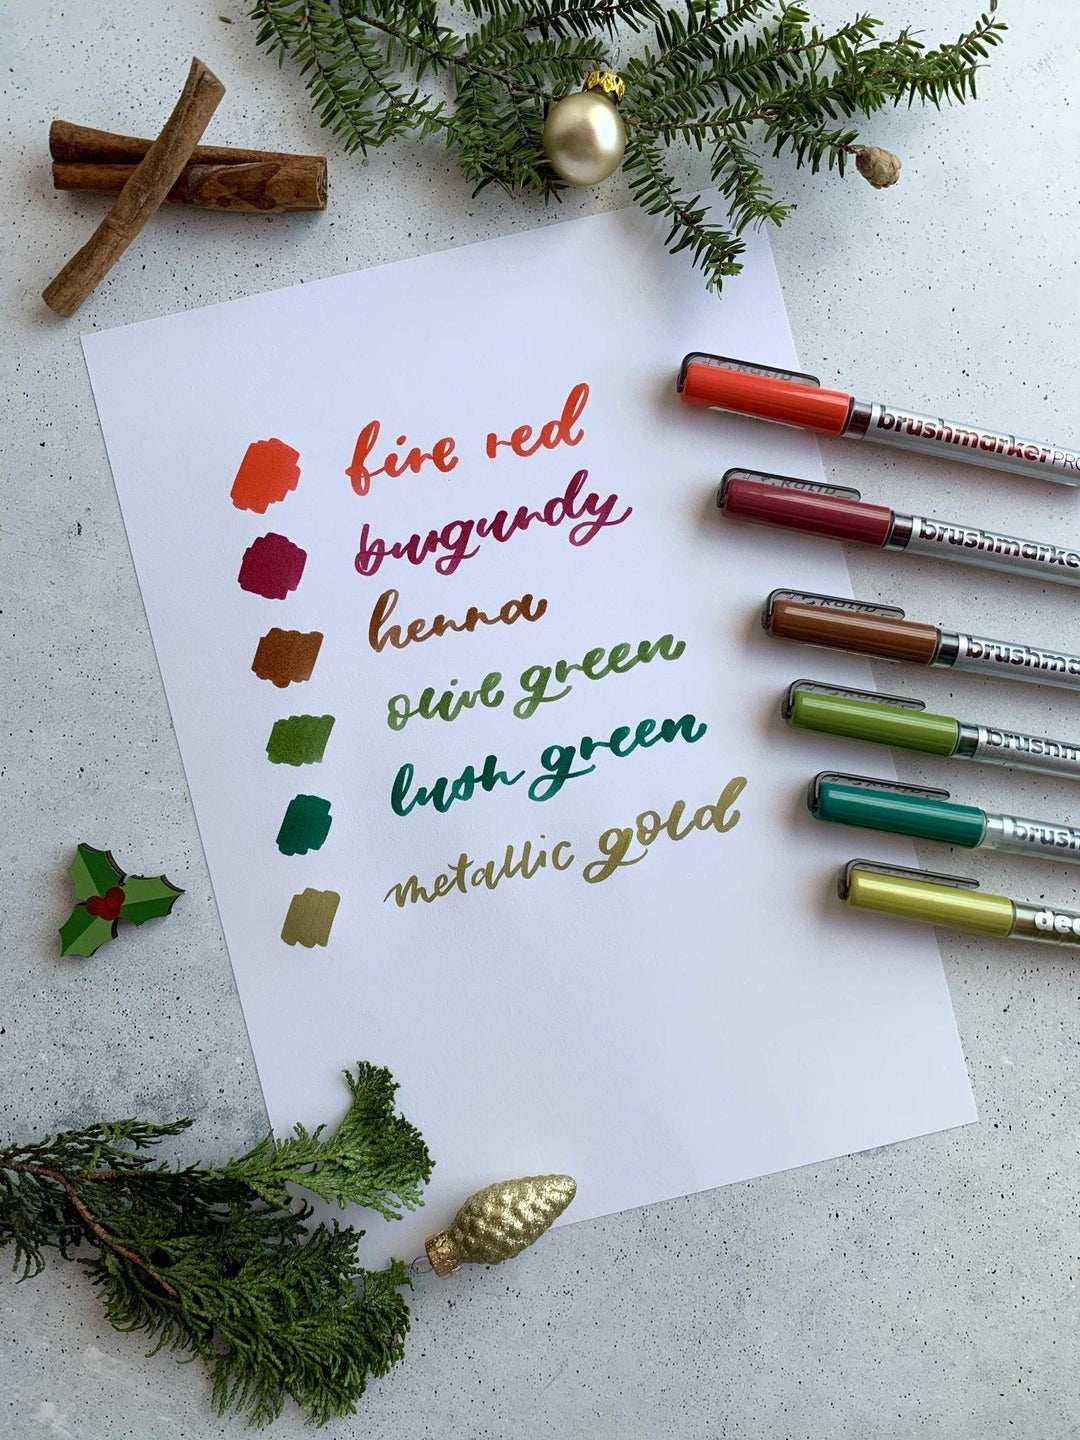 fire red
burgundy
henna
olive green
lush green
metallic gold
brushmarkerPRO
brushmarke
brushma
brushm
brush
dec